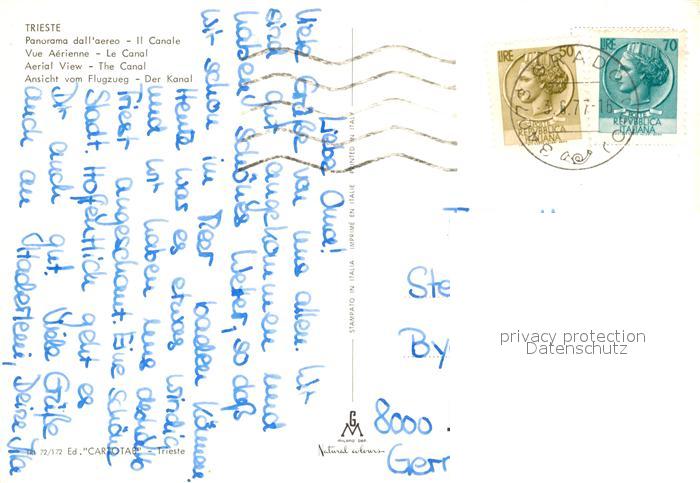 TRIESTE
Panorama dall'aereo - Il Canale
Vue Aérienne - Le Canal
Aerial View - The Canal
Ansicht vom Flugzeug - Der Kanal
LIRE 50
POSTE
REPVBBLICA
ITALIANA
LIRE 70
POSTE
REPVBBLICA
ITALIANA
Liebe Oma!
Viele Grüße von uns allen. Wir
sind gut angekommen und
haben schönes Wetter, so daß
wir schon im Meer baden können.
Heute war es etwas windig
und wir haben uns deshalb
Triest angeschaut. Eine schöne
Stadt. Hoffentlich geht es
Dir auch gut. Viele Grüße
auch an
Deine
STAMPATO IN ITALIA IMPRIMÉ EN ITALIE PRINTED IN ITALY
Ste
By
8000
Gerr
privacy protection
Datenschutz
GM
MILANO DEP.
Natural colours
72/172 Ed. "CARTOTAB" - Trieste